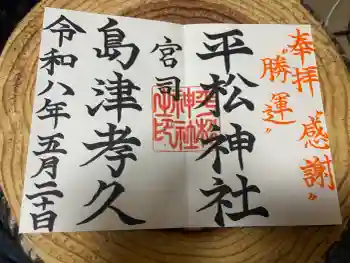 奉拝 感謝
〝勝運〟
平松神社
宮司
島津孝久
令和八年五月二十日